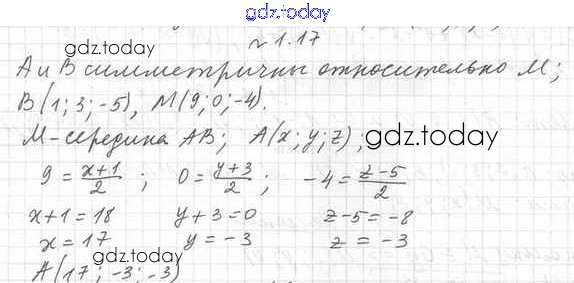 gdz.today
№1.17
gdz.today
A и B симметричны относительно M;
B(1; 3; -5), M(9; 0; -4).
M-середина AB; A(x; y; z); gdz.today
9 = \frac{x+1}{2} ; 0 = \frac{y+3}{2} ; -4 = \frac{z-5}{2}
x+1=18 y+3=0 z-5=-8
x=17 y=-3 z=-3
gdz.today
A(17; -3; -3)